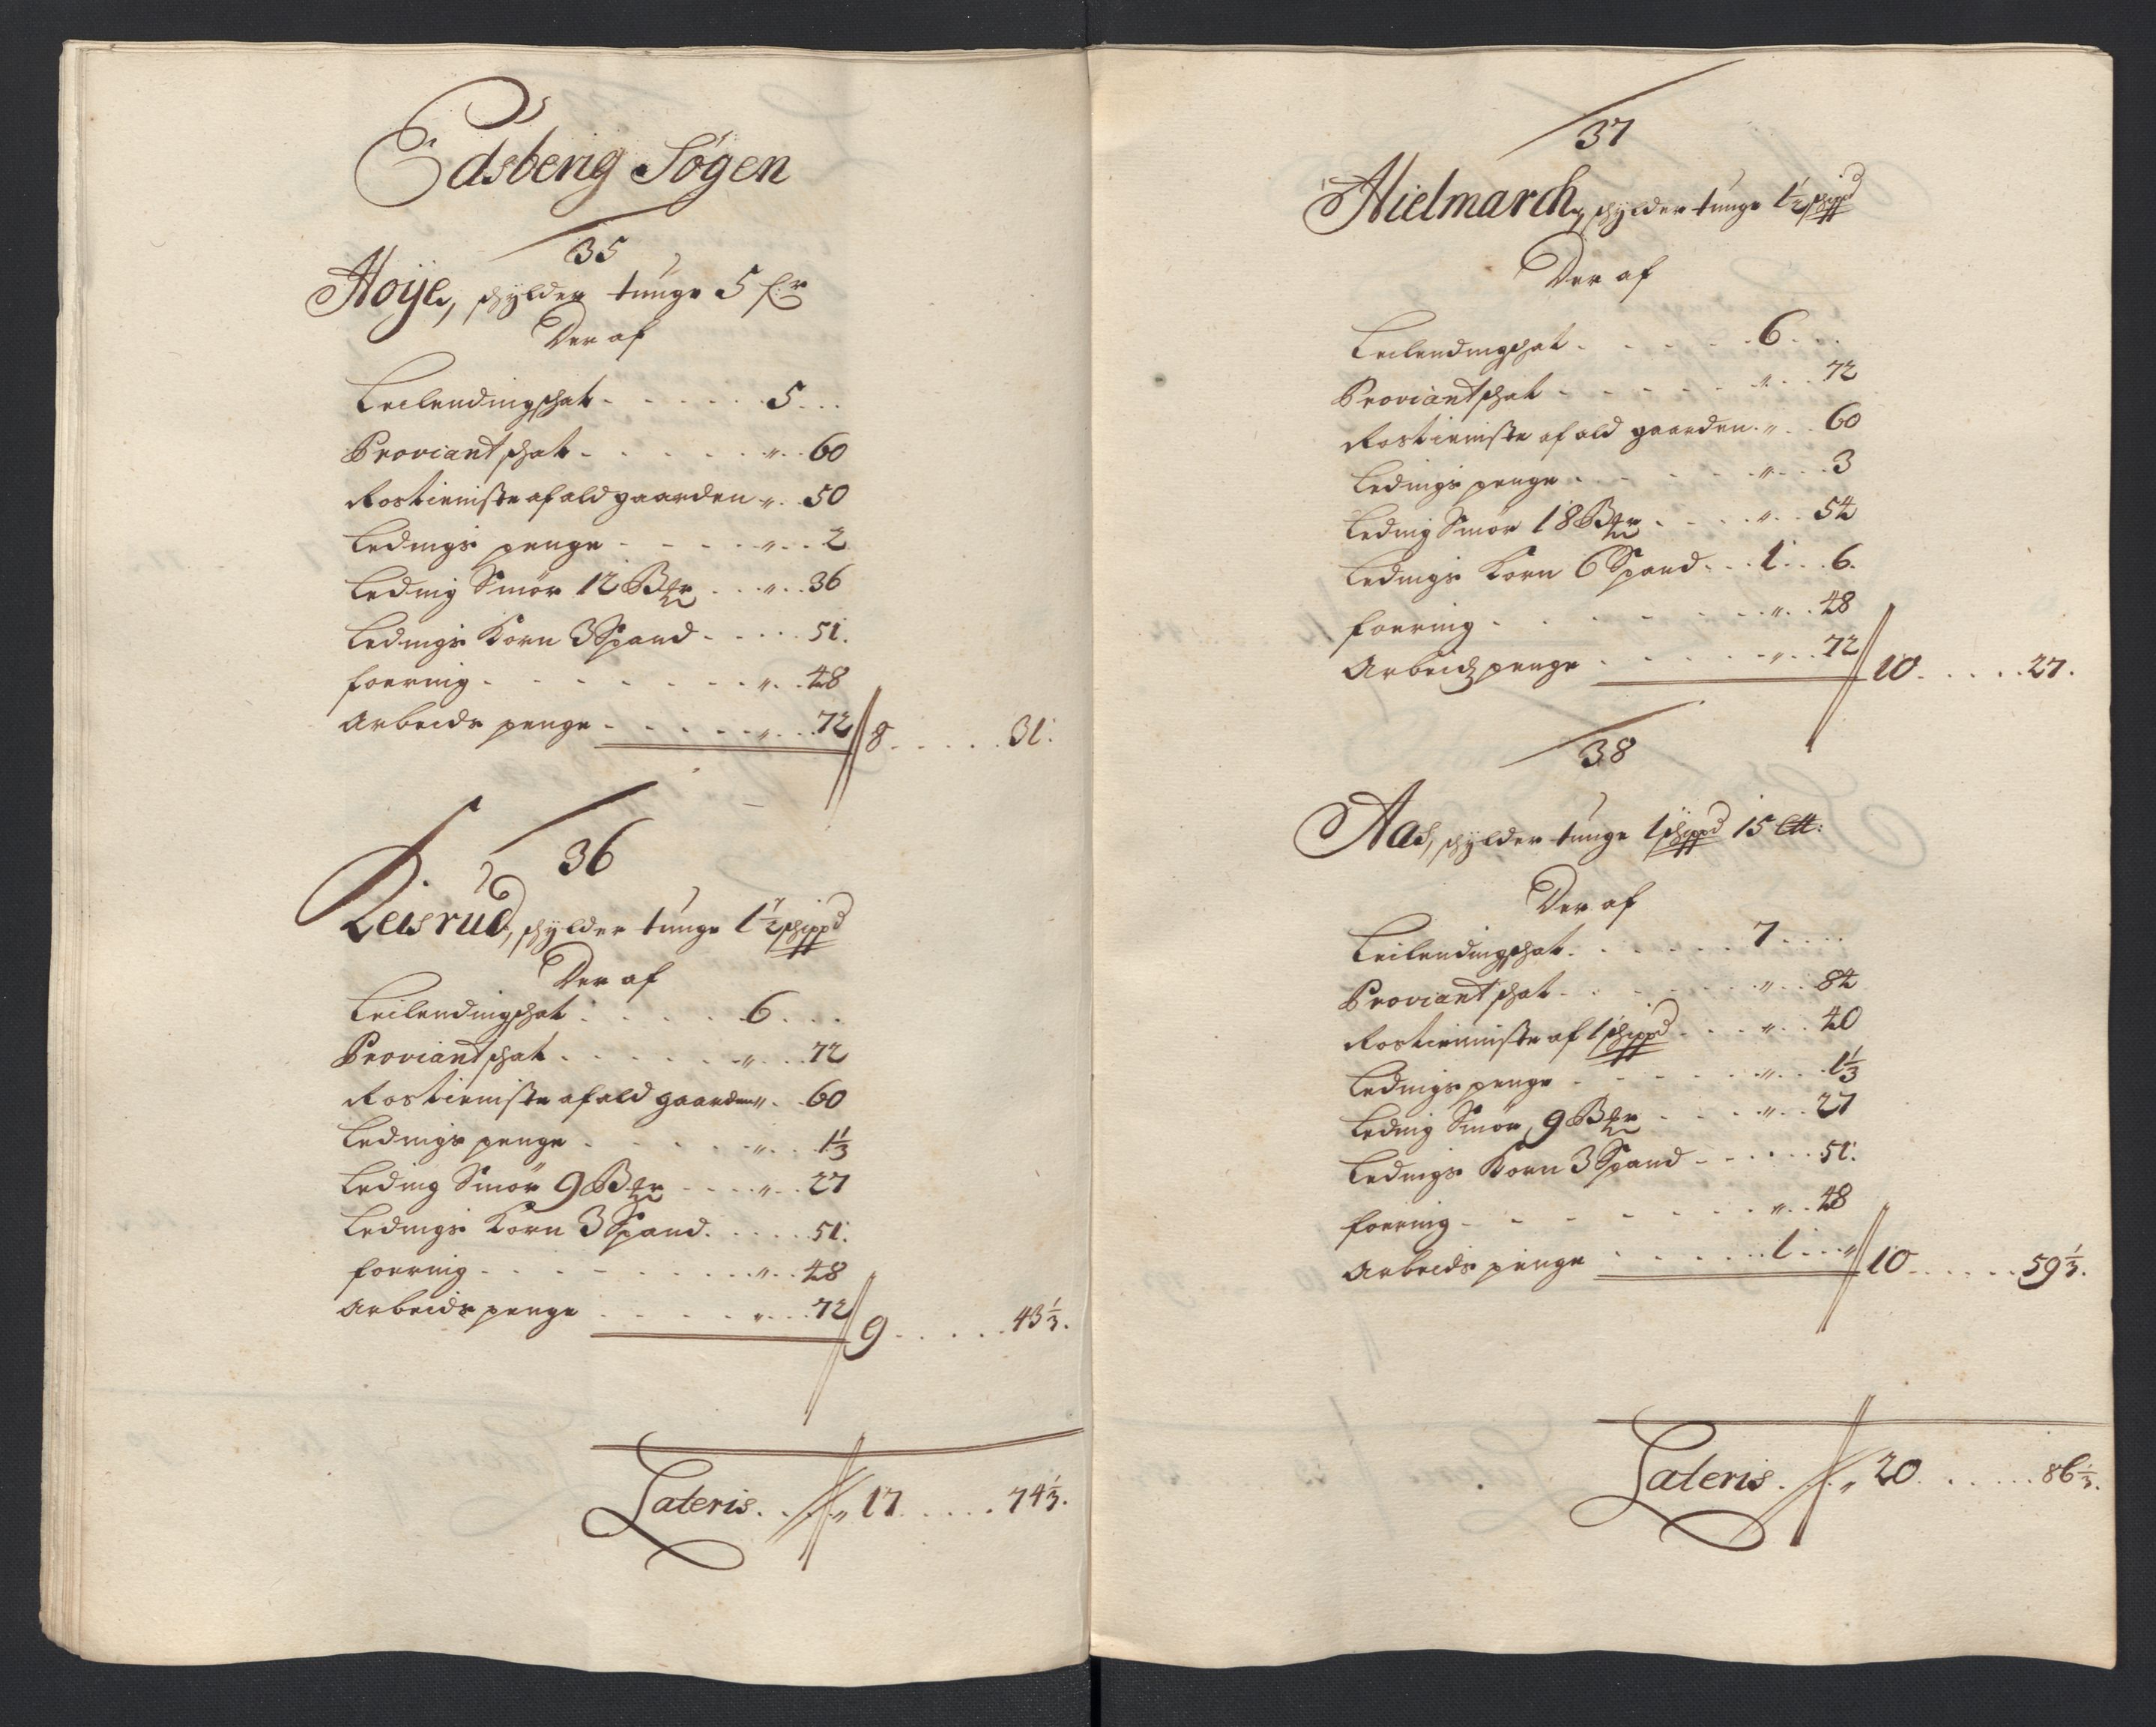 Edsberig Søgen
35
Høye, schylder tunge 5 ſ:r
Der af
Leilendingschat - - - - - 5 - -
Proviant schat - - - - - " - 60
Rostieniste af ald gaarden " - 50
Ledings penge - - - - " - 2
Leding Smør 12 Bꝭr - - " - 36
Ledings Korn 3 Spand - - - - 51.
foering - - - - - - - " - 48
Arbeids penge - - - - - " - 72 // 8 - - - - 31.
36
Leisrud, schylder tunge 1½ schippd
Der af
Leilendingschat - - - - 6 - -
Proviant schat - - - - - " - 72
Rostieniste af ald gaarden " - 60
Ledings penge - - - - - " - 1⅓
Leding Smør 9 Bꝭr - - - " - 27
Ledings Korn 3 Spand - - - - 51.
foering - - - - - - - " - 48
Arbeids penge - - - - " - 72 // 9 - - - - 43⅓.
Lateris - - // " 17 - - - - 74⅓.
37
Hielmarch, schylder tunge 1½ schippd
Der af
Leilendingschat - - - - - 6 - -
Proviant schat - - - - - " - 72
Rostieniste af ald gaarden " - 60
Ledings penge - - - - - " - 3
Leding Smør 18 Bꝭr - - - " - 54
Ledings Korn 6 Spand - - 1 - - 6.
foering - - - - - - - " - 48
Arbeids penge - - - - - " - 72 // 10 - - - - 27.
38
Aas, schylder tunge 1 schippd 15 L℔:
Der af
Leilendingschat - - - - - 7 - -
Proviant schat - - - - - " - 84
Rostieniste af 1 schippd - - - " - 40
Ledings penge - - - - - " - 1⅓
Leding Smør, 9 Bꝭr - - - " - 27
Ledings Korn 3 Spand - - - - - 51.
foering - - - - - - - " - 48
Arbeids penge - - - - - 1 - - " // 10 - - - - 59⅓.
Lateris - - // " 20 - - - - 86⅓.